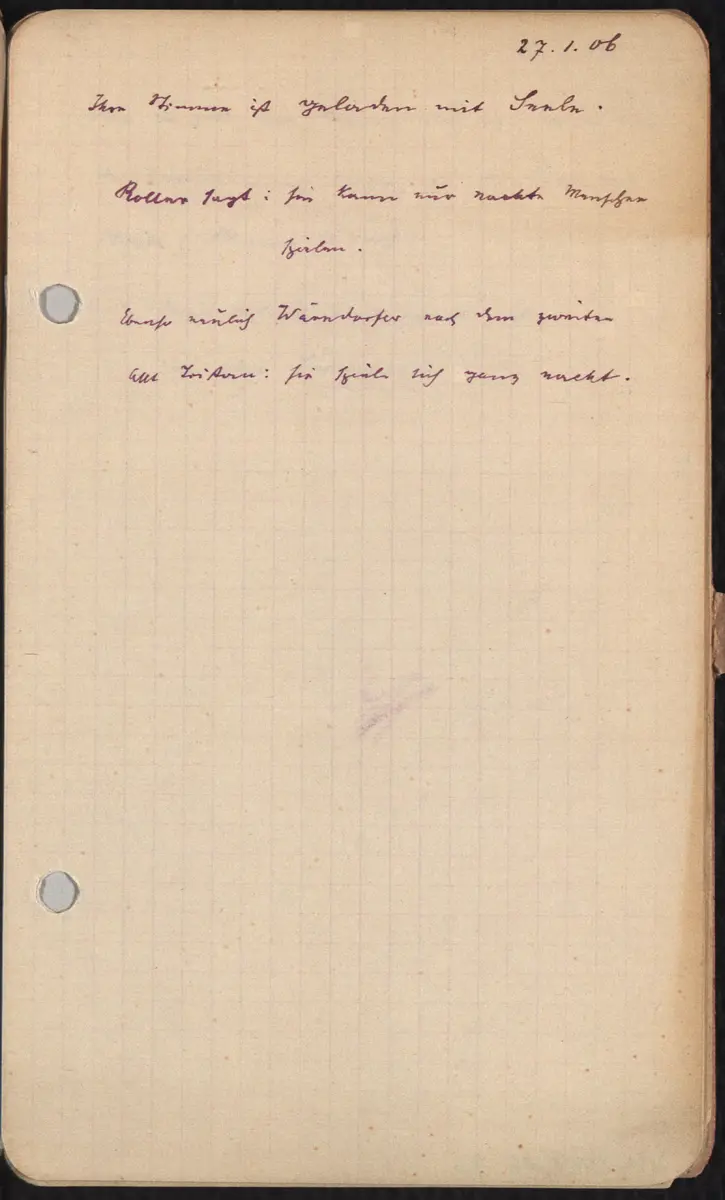 27.1.06
Ihre Stimme ist geladen mit Seele.
Roller sagt: sie kann nur nackte Menschen
spielen.
Ebenso neulich Wärndorfer nach dem zweiten
Akt Tristan: sie spiele sich ganz nackt.